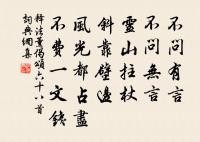 不問有言
不問無言
靈山拄杖
斜靠壁邊
風光都占盡
不費一文錢
釋法薰偈頌六十八首
詞典網集